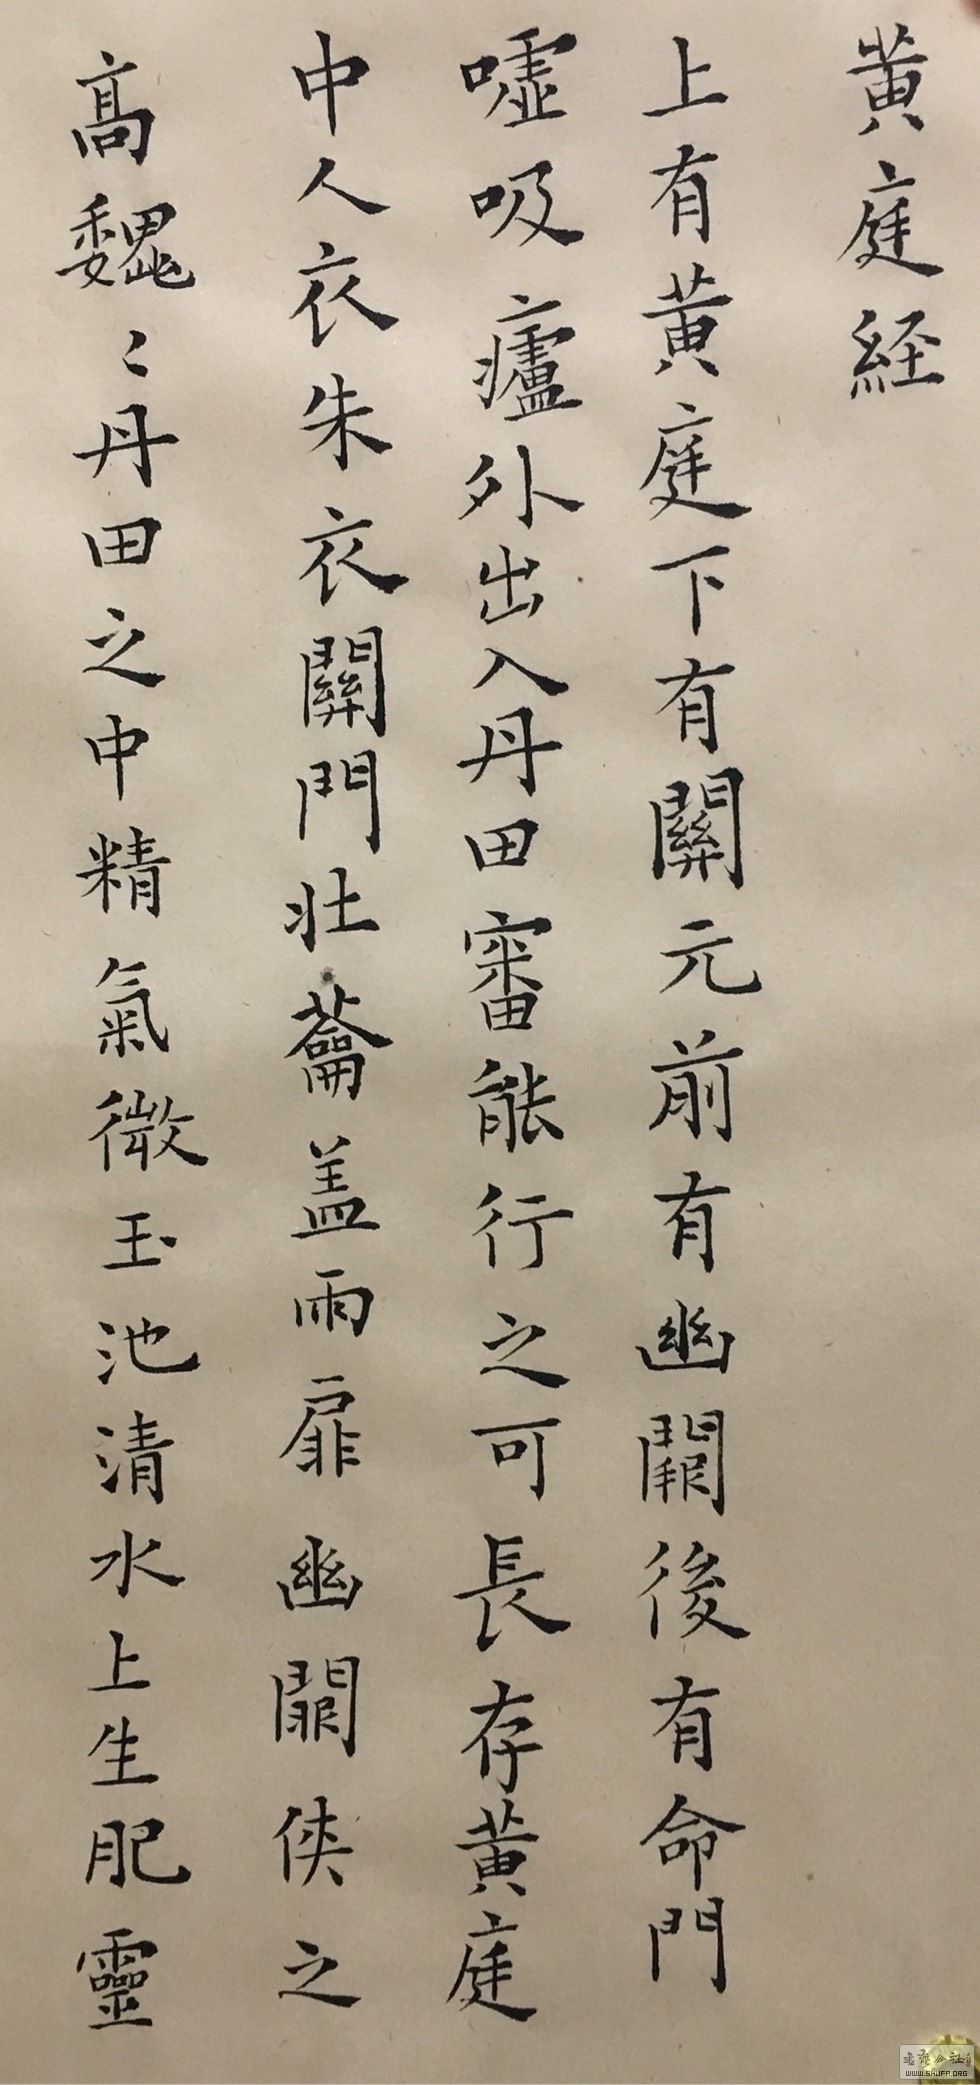 黄庭経
上有黄庭下有關元前有幽闕後有命門
嘘吸廬外出入丹田審能行之可長存黄庭
中人衣朱衣關門壮蘥盖兩扉幽闕侠之
高魏〻丹田之中精氣微玉池清水上生肥靈
書法公社
WWW.SHUFA.ORG